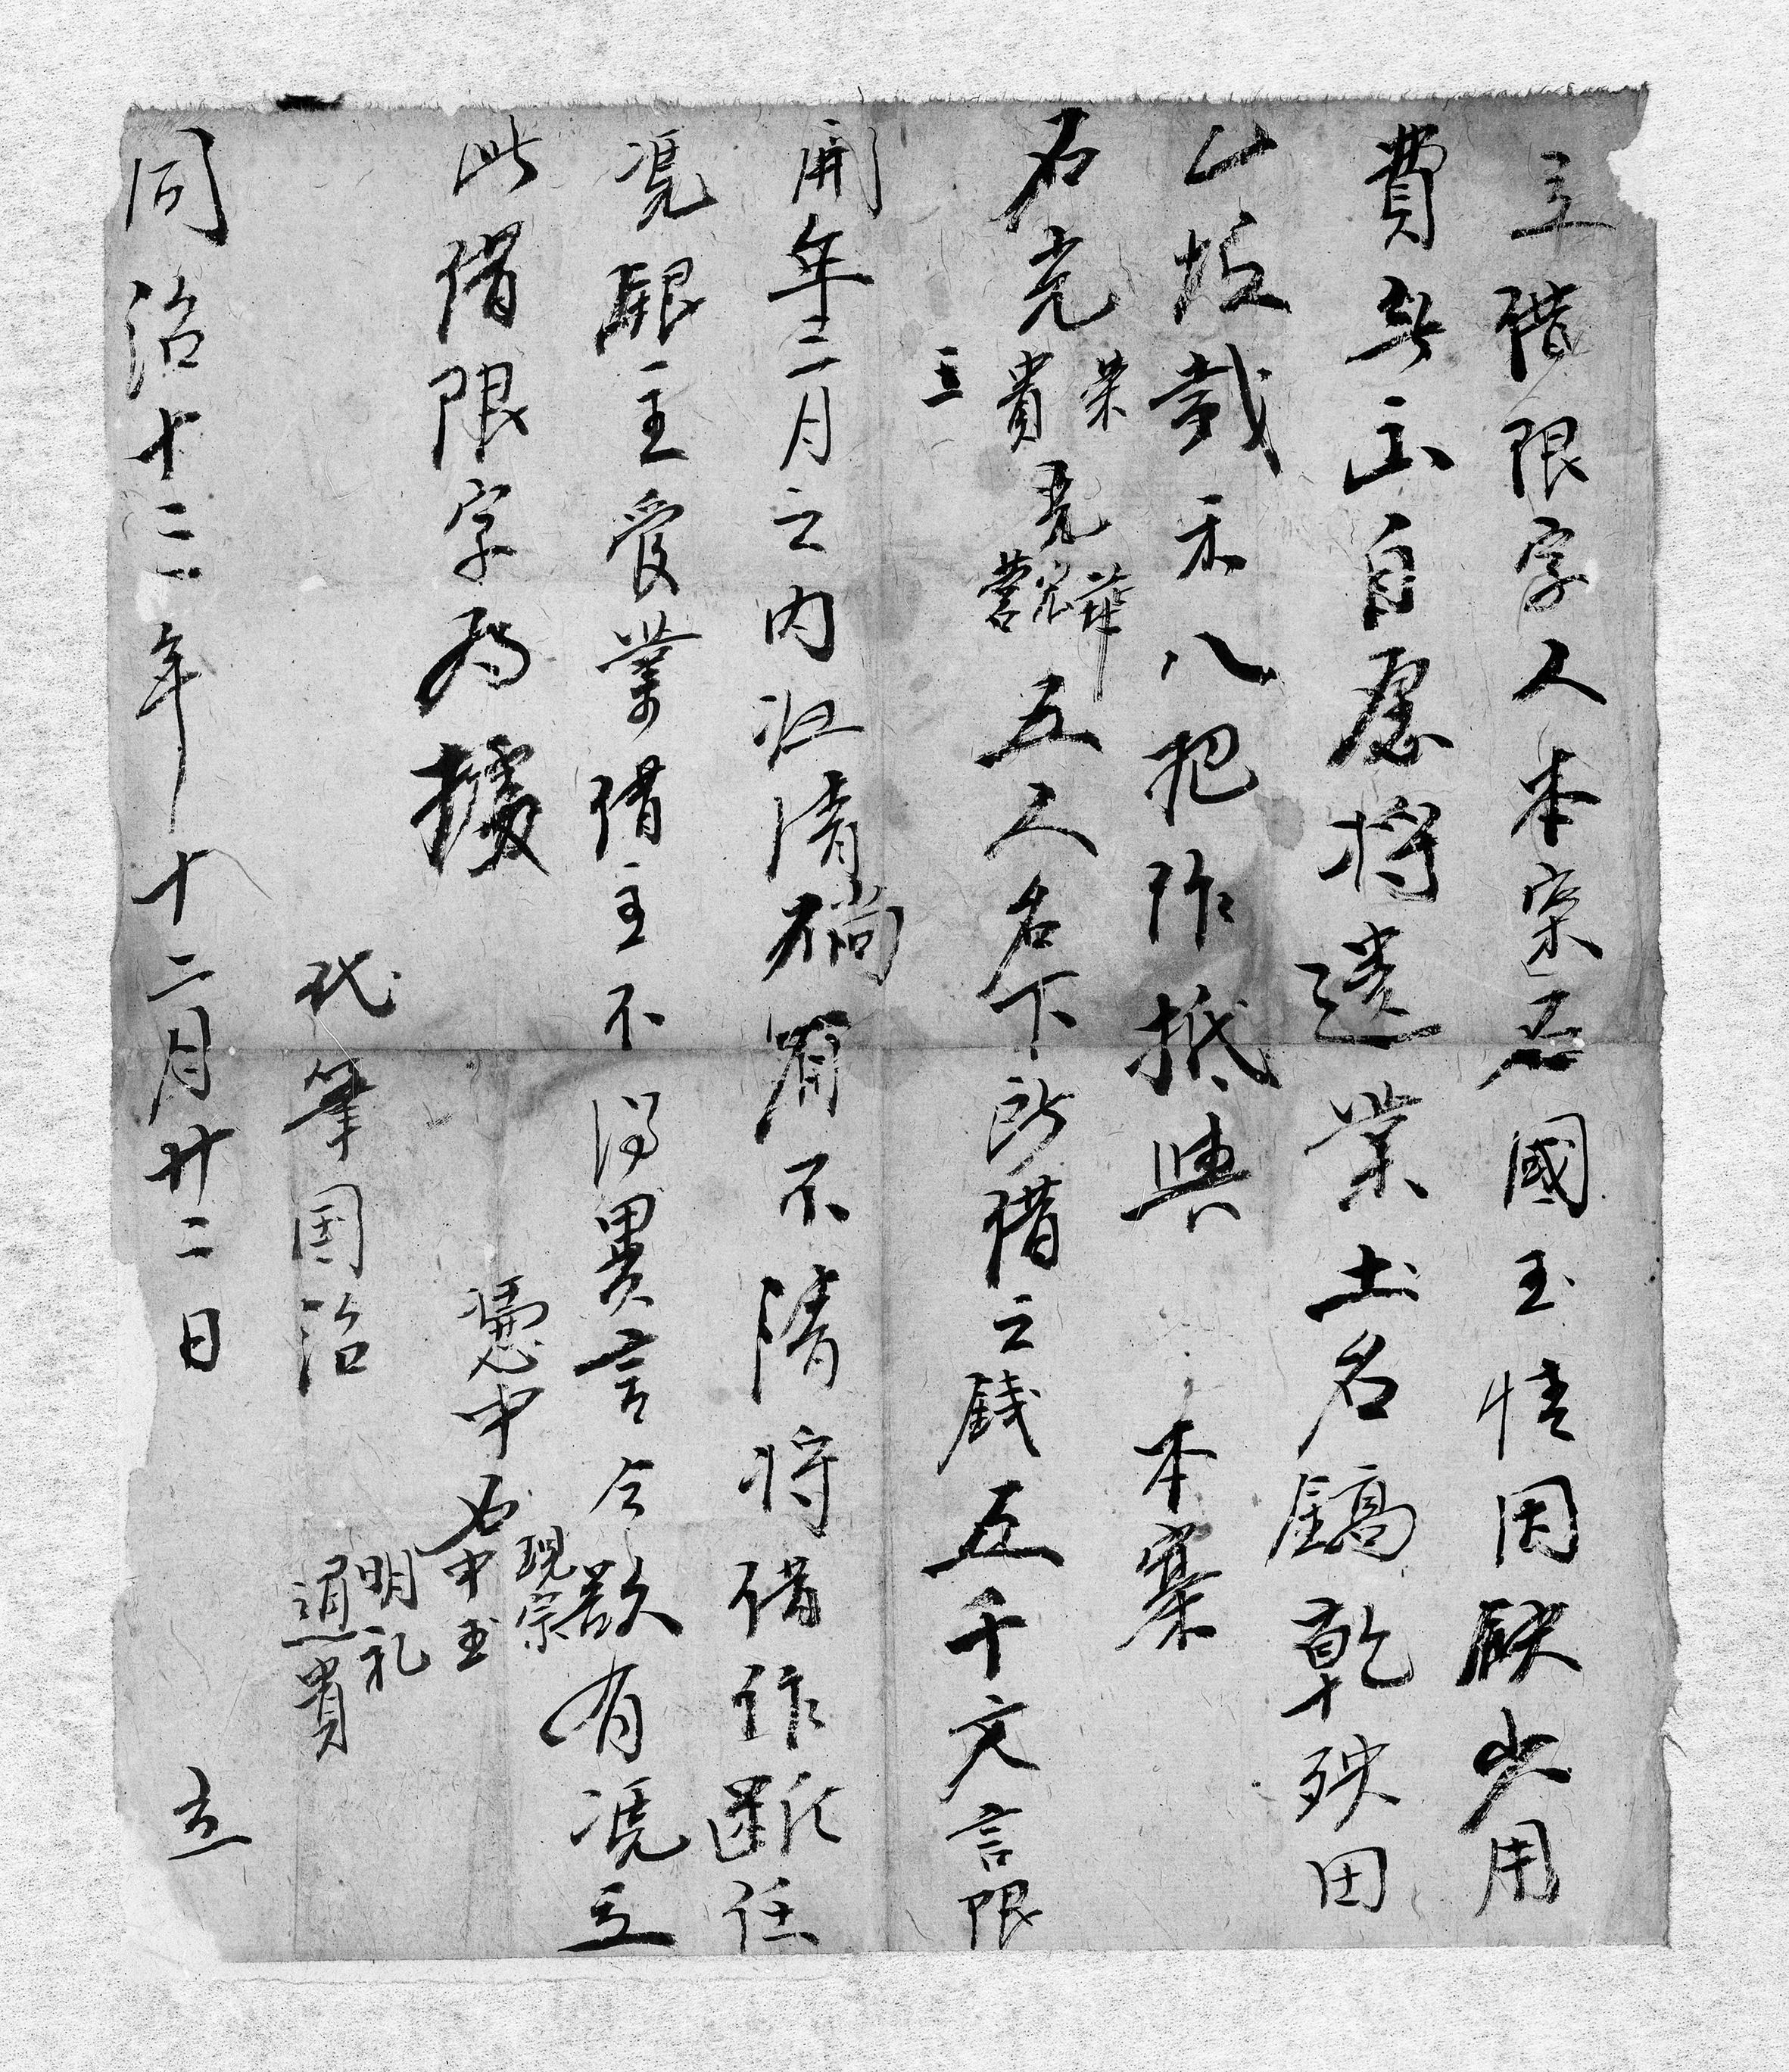 立借限字人本寨石國玉情因缺少用
費無出自愿將遺業土名鎬乾殃田
坵栽禾八把作抵與 本寨
石光榮貴光華冕營五人名下所借之錢五千文言限
開年二月之内歸清倘有不清將借作斷任
凴銀主爰業借主不得異言今欲有凴立
此借限字為據
憑中石中玉 現宗 明礼 通貴
代筆国治
同治十三年十二月廿二日 立